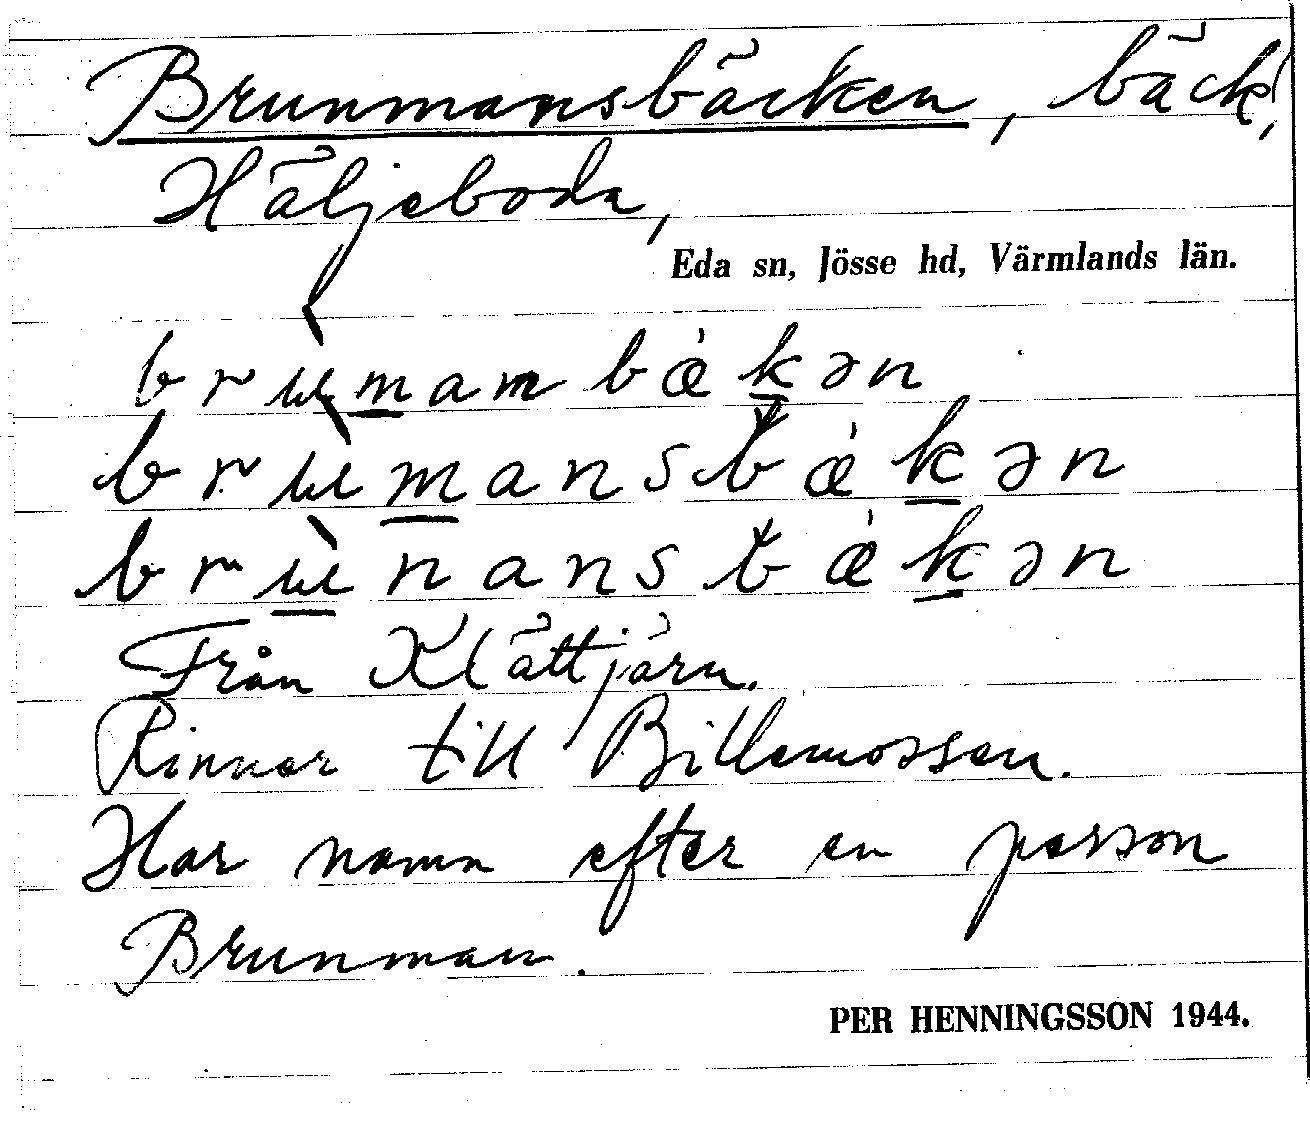 Brunmansbäcken, bäck,
Häljeboda,
Eda sn, Jösse hd, Värmlands län.
brɯ̀mambǽkən
brɯ̀mansbǽkən
brɯ̀nansbǽkən
Från Klättjärn.
Rinner till Billemossen.
Har namn efter en person
Brunman.
PER HENNINGSSON 1944.